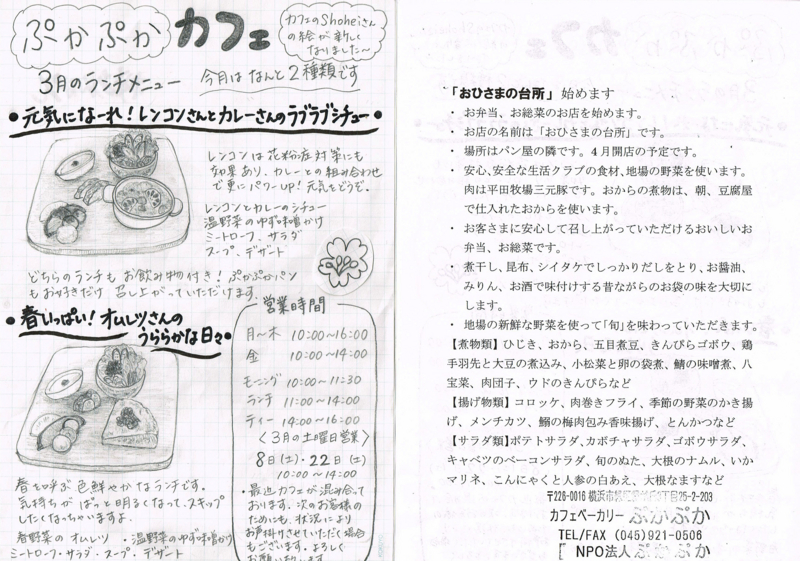 ぷかぷか カフェ
カフェのShoheiさん
の絵が新しく
なりました〜
3月のランチメニュー 今月はなんと2種類です
●元気になーれ!レンコンさんとカレーさんのラブラブシチュー●
レンコンは花粉症対策にも
効果あり、カレーとの組み合わせ
で更にパワーUP!元気をどうぞ。
レンコンとカレーのシチュー
温野菜のゆず味噌かけ
ミートローフ・サラダ
スープ、デザート
どちらのランチもお飲み物付き!ぷかぷかパン
もお好きだけ 召し上がっていただけます。
●春いっぱい!オムレツさんの
うららかな日々●
春を呼ぶ色鮮やかなランチです。
気持ちがぱっと明るくなって、スキップ
したくなっちゃいますよ。
春野菜のオムレツ ・温野菜のゆず味噌かけ
ミートローフ・サラダ・スープ・デザート
営業時間
月〜木 10:00〜16:00
金 10:00〜14:00
モーニング 10:00〜11:30
ランチ 11:00〜14:00
ティー 14:00〜16:00
〈3月の土曜日営業〉
8日(土)・22日(土)
10:00〜14:00
・最近カフェが混み合って
おります。次のお客様の
ためにも、状況により
お声掛けさせていただく場合
もございます。よろしく
お願いします。
「おひさまの台所」始めます
・ お弁当、お総菜のお店を始めます。
・ お店の名前は「おひさまの台所」です。
・ 場所はパン屋の隣です。4月開店の予定です。
・ 安心、安全な生活クラブの食材、地場の野菜を使います。
肉は平田牧場三元豚です。おからの煮物は、朝、豆腐屋
で仕入れたおからを使います。
・ お客さまに安心して召し上がっていただけるおいしいお
弁当、お総菜です。
・ 煮干し、昆布、シイタケでしっかりだしをとり、お醤油、
みりん、お酒で味付けする昔ながらのお袋の味を大切に
します。
・ 地場の新鮮な野菜を使って「旬」を味わっていただきます。
【煮物類】ひじき、おから、五目煮豆、きんぴらゴボウ、鶏
手羽先と大豆の煮込み、小松菜と卵の袋煮、鯖の味噌煮、八
宝菜、肉団子、ウドのきんぴらなど
【揚げ物類】コロッケ、肉巻きフライ、季節の野菜のかき揚
げ、メンチカツ、鰯の梅肉包み香味揚げ、とんかつなど
【サラダ類】ポテトサラダ、カボチャサラダ、ゴボウサラダ、
キャベツのベーコンサラダ、旬のぬた、大根のナムル、いか
マリネ、こんにゃくと人参の白あえ、大根なますなど
〒226-0016 横浜市 25-2-203
カフェベーカリー ぷかぷか
TEL/FAX (045)921-0506
NPO法人 ぷかぷか